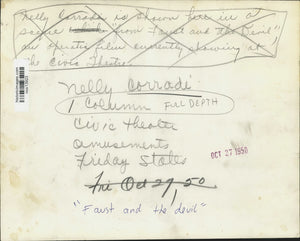 Nelly Corradi is shown here in a
scene which from "Faust and the Devil"
an operatic film currently showing at
the Civic Theatre.
Nelly Corradi
1 Column FULL DEPTH
Civic Theatre
amusements
Friday States
OCT 27 1950
Fri Oct 27, 50
"Faust and the devil"